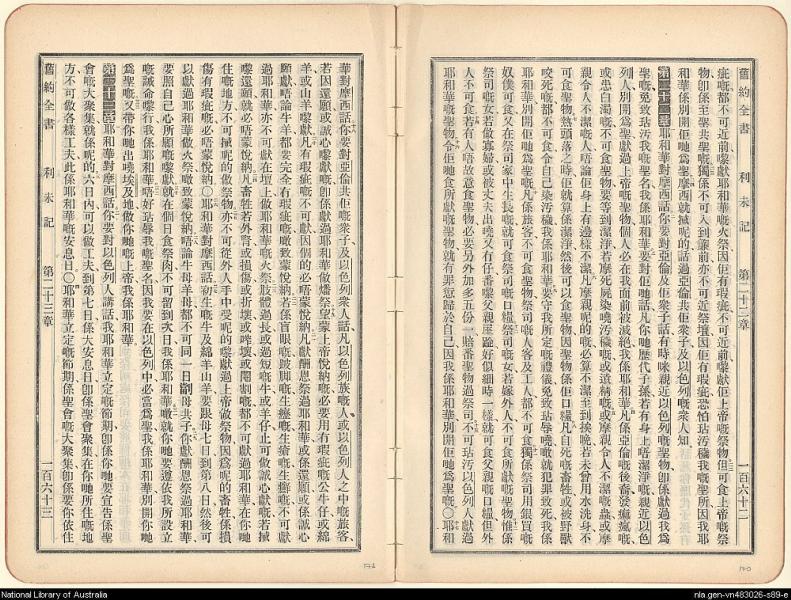 舊約全書 利未記 第二十二章 一百六十二
疵嘅都不可近前嚟獻耶和華嘅火祭因佢有瑕疵不可近前嚟獻佢上帝嘅祭物但可食上帝嘅祭
物卽係至聖共聖嘅獨係不可入到簾前亦不可近祭壇因佢有瑕疵恐怕玷污穢我嘅聖所因我耶
和華係別開佢哋爲聖摩西就搣呢的話過亞倫共佢衆子及以色列嘅衆人知
第二十二章耶和華對摩西話你要對亞倫及佢衆子話有時唻親近以色列嘅聖物卽係獻過我爲
聖嘅免致玷污我嘅聖名我係耶和華要對佢哋話凡你哋歷代子孫若有身上唔潔淨嘅親近以色
列人別開爲聖獻過上帝嘅聖物個人必在我面前被滅絕我係耶和華凡係亞倫嘅後裔發瘋癩嘅
或患白濁嘅不可食聖物要等到潔淨若摩死屍染喥污穢嘅或遺精嘅或摩親令人不潔嘅蟲或摩
親令人不潔嘅人唔論佢身上有邊樣不潔凡摩親呢的嘅必算不潔至到挨晚若未曾用水洗身不
可食聖物熱頭落之時佢就算係潔淨然後可以食聖物因聖物係佢口糧凡自死嘅畜牲或被野獸
咬死嘅都不可食令自己染污穢我係耶和華要守我所定嘅禮儀免致玷辱喥嗽就犯罪致死我係
耶和華別開佢哋爲聖嘅凡係旅客不可食聖物祭司嘅人客及工人都不可食獨係祭司用銀買嘅
奴僕可食又在祭司家中生長嘅就可食祭司嘅口糧祭司嘅女若嫁外人不可食所獻嘅聖物惟係
祭司嘅女若做寡婦或被丈夫出曉又有仔番嚟父親屋跕好似細時一樣就可食父親嘅口糧但外
人不可食若有人唔故意食聖物必要另外加多五份一賠番聖物過祭司不可玷污以色列人獻過
耶和華嘅聖物令佢哋食所獻嘅聖物就有罪愆歸於自己因我係耶和華別開佢哋爲聖嘅○耶和
舊約全書 利未記 第二十三章 一百六十三
華對摩西話你要對亞倫共佢嘅衆子及以色列衆人話凡以色列族嘅人或以色列人之中嘅旅客
若因還願或誠心嚟獻嘅卽係獻過耶和華做燔祭望蒙上帝悅納嘅必要用有瑕疵嘅公牛仔或綿
羊或山羊嚟獻凡有瑕疵嘅不可獻因個的必唔蒙悅納凡獻酬恩祭過耶和華或係還願或係誠心
願獻唔論牛羊都要完全有瑕疵嘅嗽致蒙悅納若係盲眼嘅跛脚嘅生瘻嘅生瘡嘅生癬嘅不可獻
過耶和華亦不可獻在壇上做耶和華嘅火祭肢體過長或過短嘅牛或羊仔止可做誠心獻嘅若搣
嚟還願就必唔蒙悅納凡畜牲若外腎或損傷或折壞或唪壞或閹割嘅都不可獻過耶和華在你哋
住嘅地方不可搣呢的做祭物亦不可從外人手中受呢的嚟獻過上帝做祭物因爲呢的畜牲係損
傷有瑕疵嘅必唔蒙悅納○耶和華對摩西話初生嘅牛及綿羊山羊要跟母七日到第八日然後可
以獻過耶和華做火祭嗽致蒙悅納唔論牛母羊母都不可同一日劏母共子你獻酬恩祭過耶和華
要照自己心所願嘅嚟獻就在個日食祭肉不可留到次日我係耶和華嗽就你哋要遵依我所設立
嘅誡命嚟行我係耶和華唔好玷辱我嘅聖名因我要在以色列中必當爲聖我係耶和華別開你哋
爲聖嘅又帶你哋出曉埃及地做你哋嘅上帝我係耶和華
第二十三章耶和華對摩西話你要對以色列人講話我耶和華立定嘅節期係你哋要宣告係聖
會嘅大聚集就係呢的六日內可以做工夫到第七日係大安息日卽係聖會聚集在你哋所住嘅地
方不可做各樣工夫此係耶和華嘅安息日○耶和華立定嘅節期係聖會嘅大聚集卽係要你依住
National Library of Australia
nla.gen-vn483026-s89-e